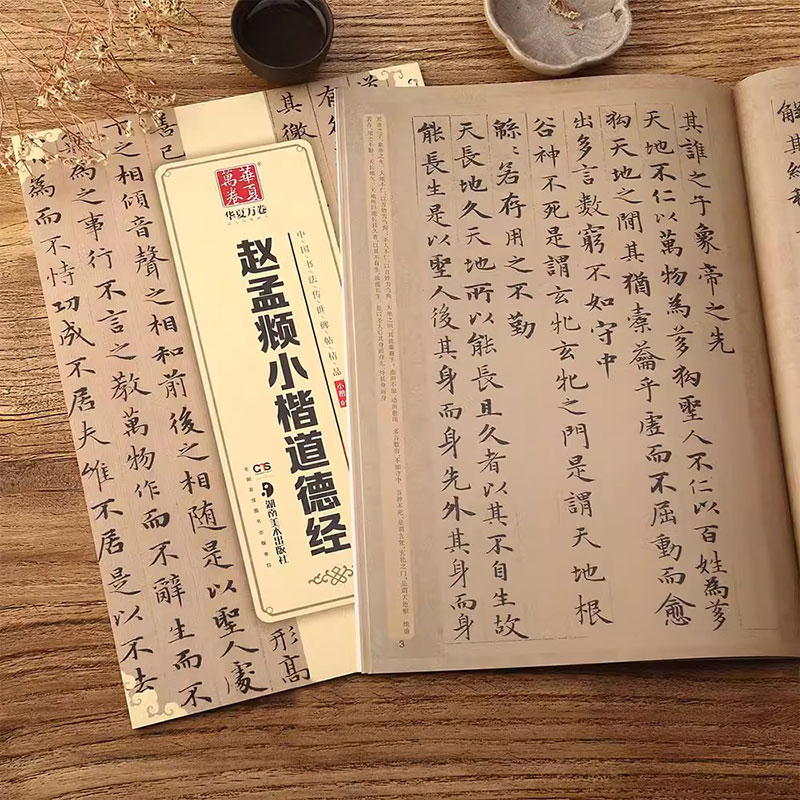 解其紛
其誰之子象帝之先
天地不仁以萬物為芻狗聖人不仁以百姓為芻
狗天地之間其猶橐籥乎虛而不屈動而愈
出多言數窮不如守中
谷神不死是謂玄牝玄牝之門是謂天地根
緜〻若存用之不勤
天長地久天地所以能長且久者以其不自生故
能長生是以聖人後其身而身先外其身而身
3
華夏
萬卷
华夏万卷
中国书法传世碑帖精品
赵孟頫小楷道德经
小楷
CTS
湖南美术出版社
全国百佳图书出版单位
其徼
形高
善已
之相傾音聲之相和前後之相隨是以聖人處
無為之事行不言之教萬物作而不辭生而不
為而不恃功成不居夫唯不居是以不去